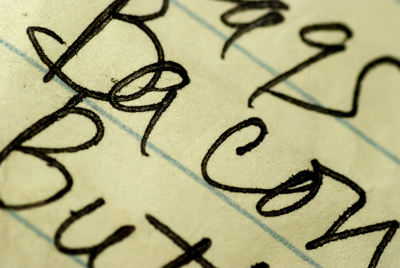 Bags
Bacon
But